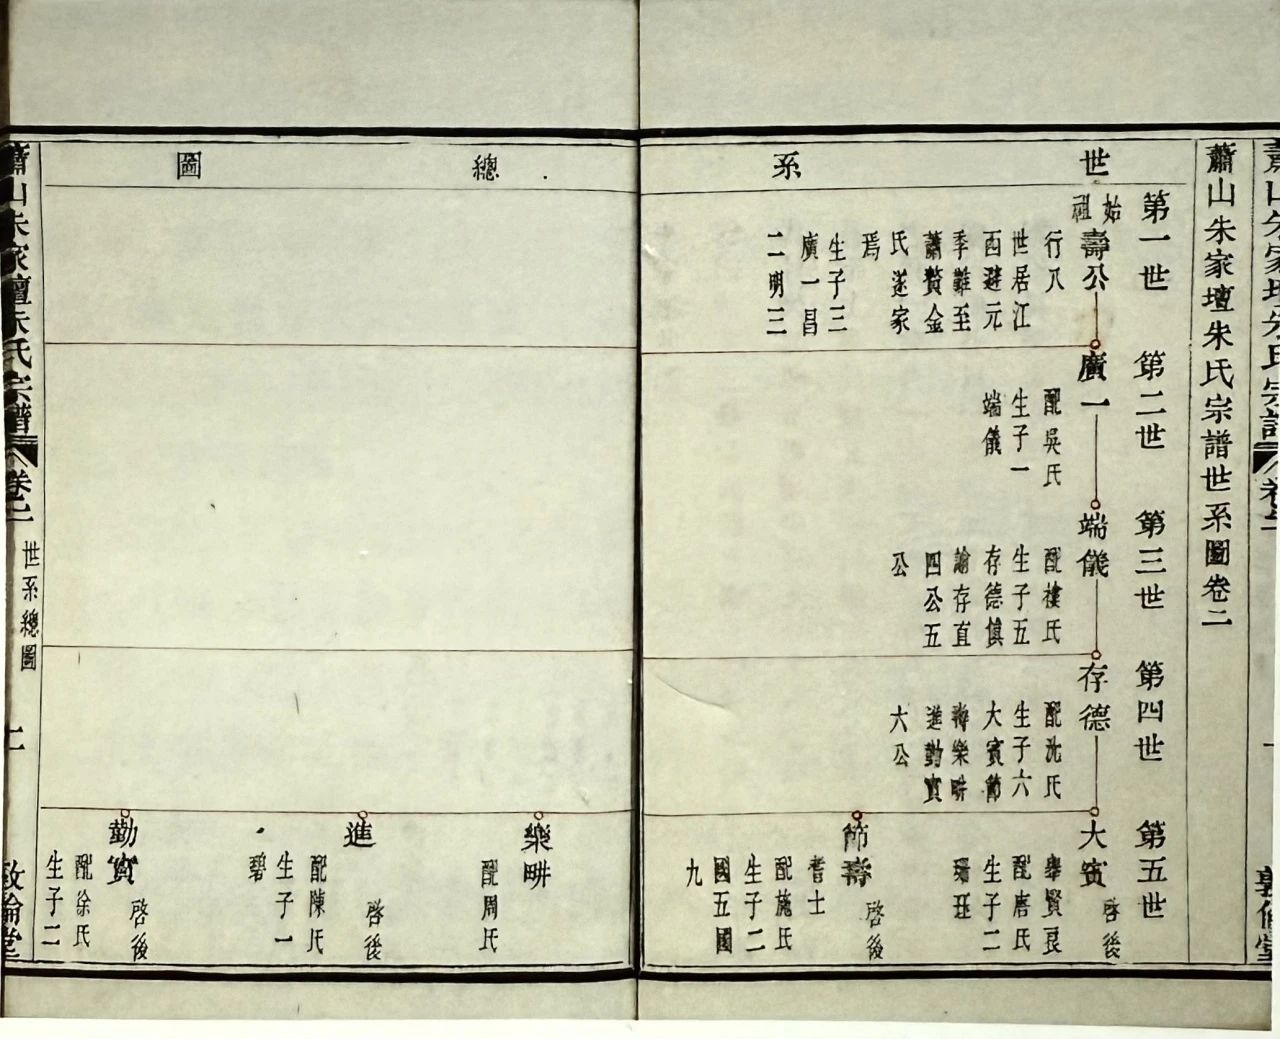 蕭山朱家壇朱氏宗譜世系圖卷二
世系總圖
第一世
始祖
壽公
行八
世居江
西避元
季難至
蕭贅金
氏遂家
焉
生子三
廣一昌
二明三
第二世
廣一
配吳氏
生子一
端儀
第三世
端儀
配樓氏
生子五
存德慎
諭存直
四公五
公
第四世
存德
配沈氏
生子六
大賓節
壽樂畊
進勤實
六公
第五世
大賓
啓後
舉賢良
配唐氏
生子二
珊珏
節壽
啓後
耆士
配施氏
生子二
國五國
九
樂畊
配周氏
進
啓後
配陳氏
生子一
碧
勤實
啓後
配徐氏
生子二
蕭山朱家壇朱氏宗譜
卷二
世系總圖
敦倫堂